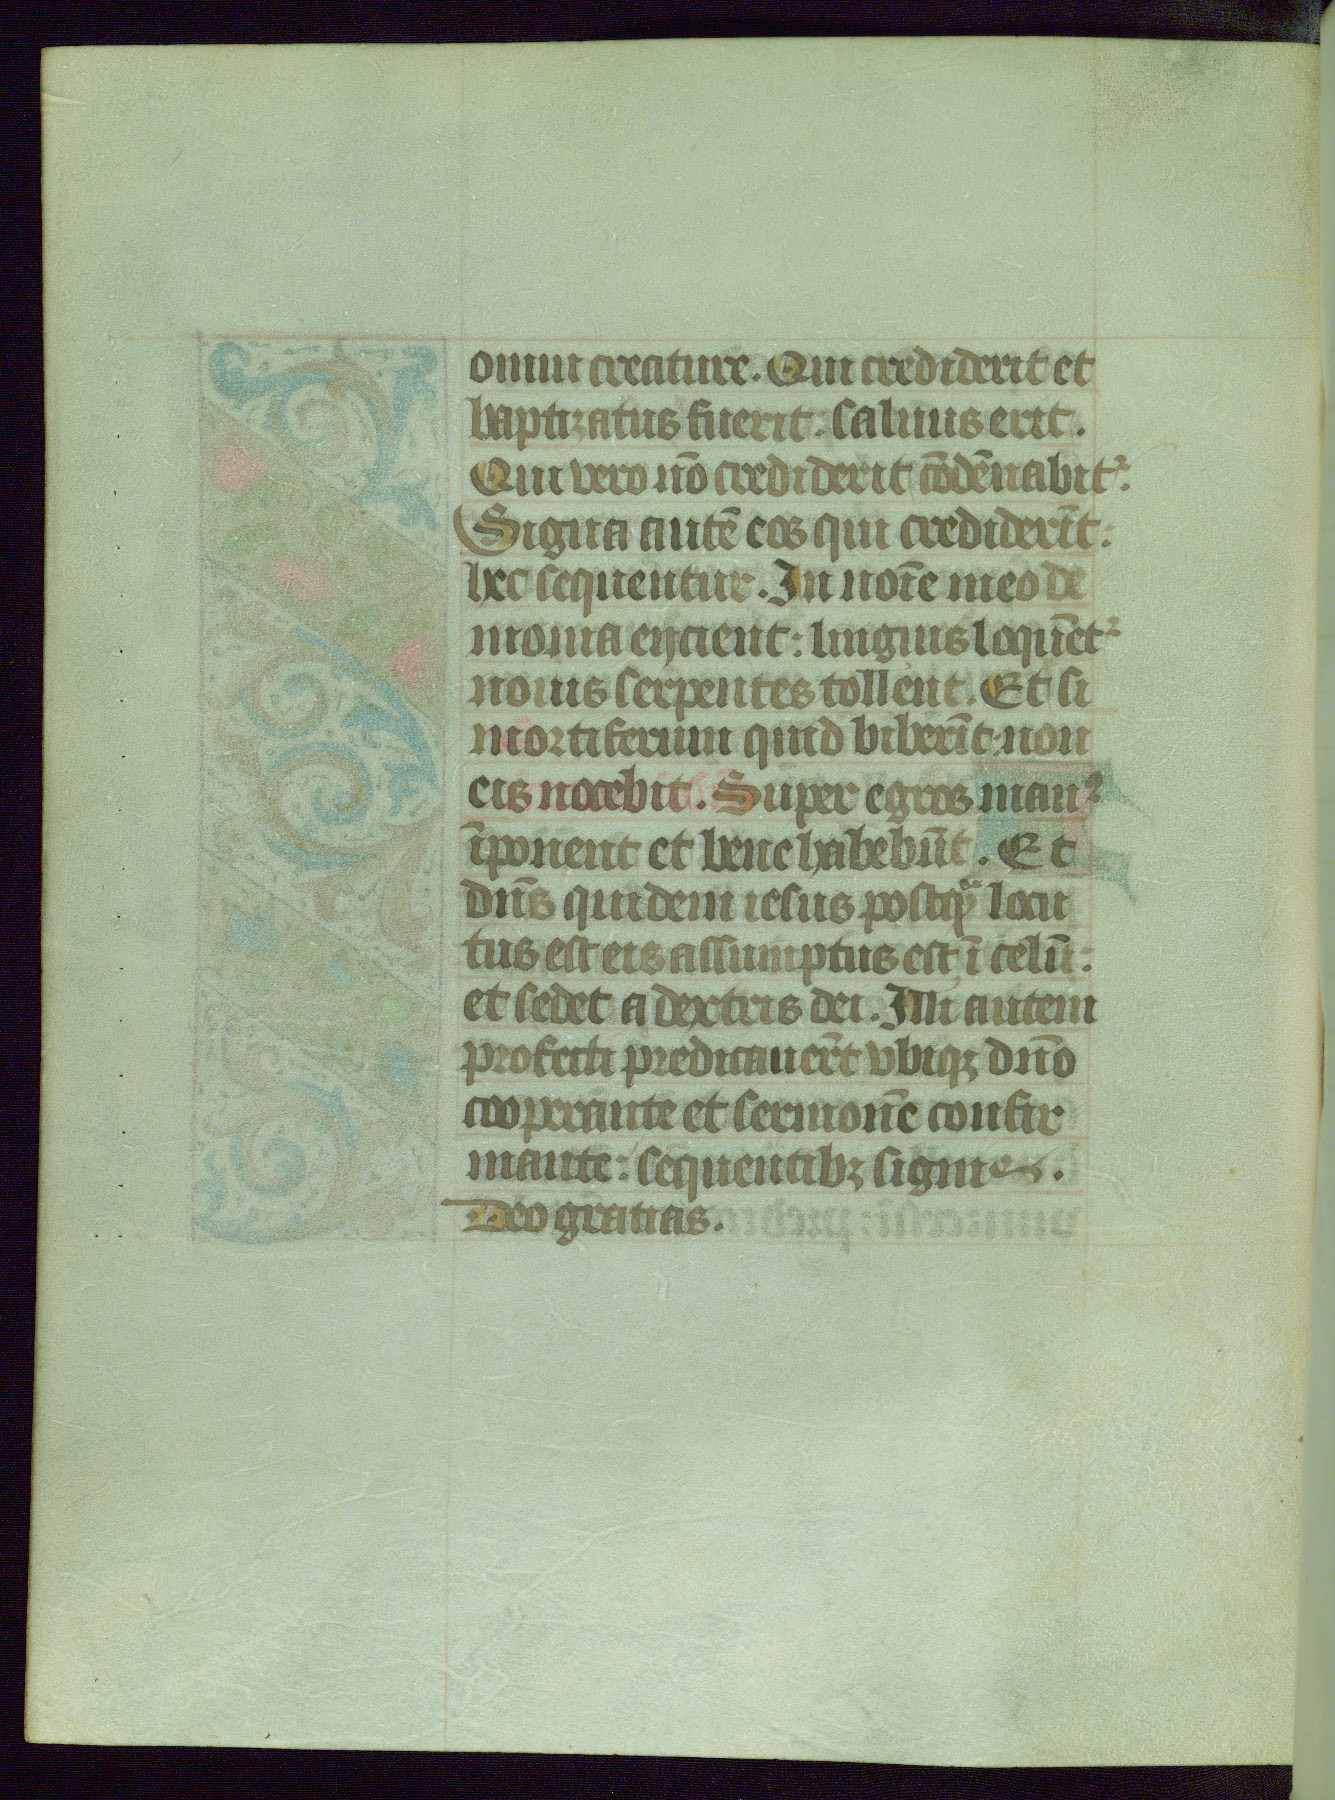 omni creature. Qui crediderit et
baptizatus fuerit: saluus erit.
Qui vero nõ crediderit cõdẽnabit᷑.
Signa autẽ eos qui crediderĩt:
hec sequentur. In noĩe meo de
monia eijcient: linguis loquẽt᷑
nouis serpentes tollent. Et si
mortiferum quid biberĩt non
eis nocebit. Super egros man᷑
ĩponent et bene habebũt. Et
dñs quidem iesus postq̃ locu
tus est eis assumptus est ĩ celũ:
et sedet a dextris dei. Illi autem
profecti predicauer̃t vbiqꝫ dño
cooperante et sermonẽ confir
mante: sequentibꝫ signis.
Deo gratias.